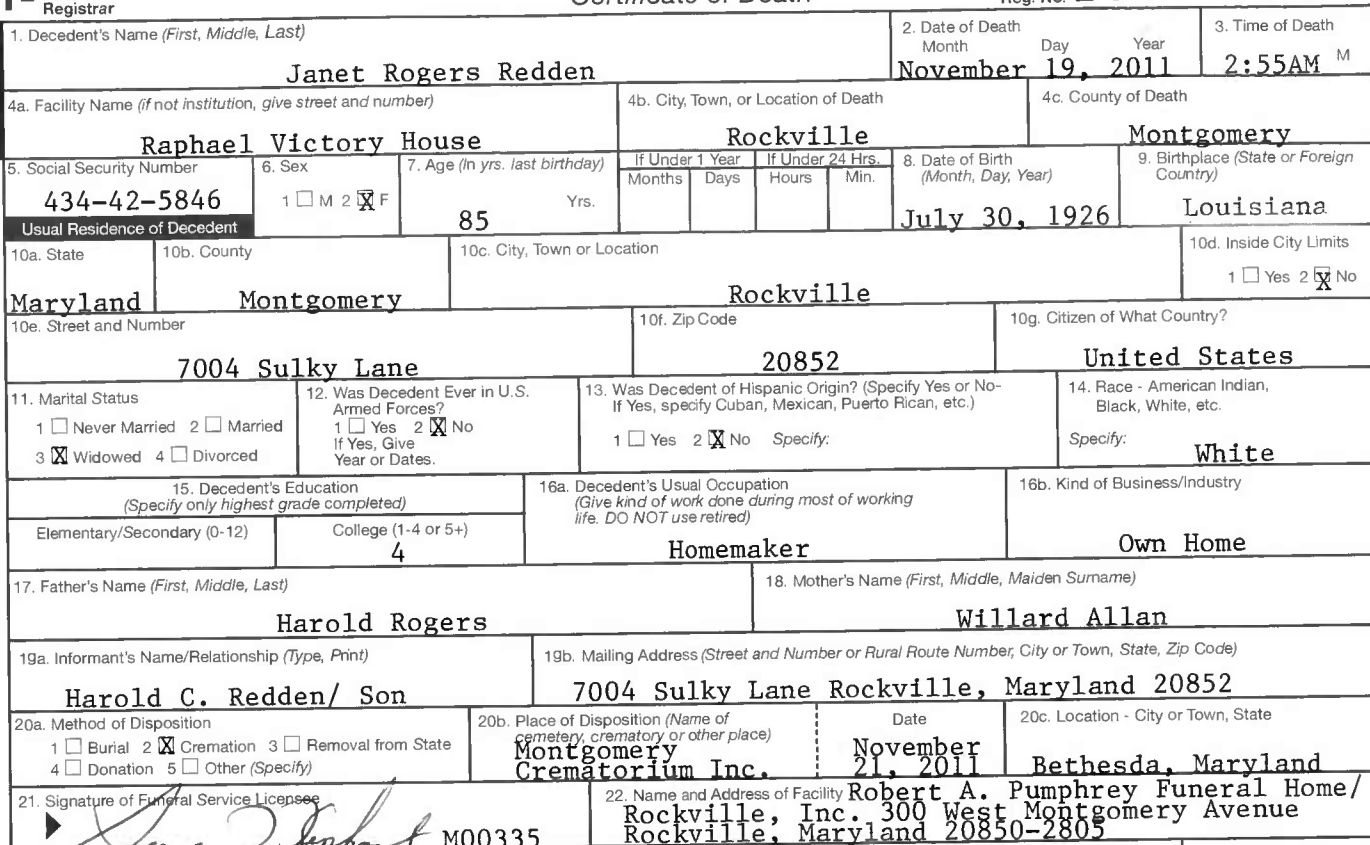 Registrar
1. Decedent's Name (First, Middle, Last)
Janet Rogers Redden
2. Date of Death
Month Day Year
November 19, 2011
3. Time of Death
2:55AM M
4a. Facility Name (if not institution, give street and number)
Raphael Victory House
4b. City, Town, or Location of Death
Rockville
4c. County of Death
Montgomery
5. Social Security Number
434-42-5846
6. Sex
1 ☐ M 2 ☒ F
7. Age (In yrs. last birthday)
85 Yrs.
If Under 1 Year
Months Days
If Under 24 Hrs.
Hours Min.
8. Date of Birth
(Month, Day, Year)
July 30, 1926
9. Birthplace (State or Foreign
Country)
Louisiana
Usual Residence of Decedent
10a. State
Maryland
10b. County
Montgomery
10c. City, Town or Location
Rockville
10d. Inside City Limits
1 ☐ Yes 2 ☒ No
10e. Street and Number
7004 Sulky Lane
10f. Zip Code
20852
10g. Citizen of What Country?
United States
11. Marital Status
1 ☐ Never Married 2 ☐ Married
3 ☒ Widowed 4 ☐ Divorced
12. Was Decedent Ever in U.S.
Armed Forces?
1 ☐ Yes 2 ☒ No
If Yes, Give
Year or Dates.
13. Was Decedent of Hispanic Origin? (Specify Yes or No-
If Yes, specify Cuban, Mexican, Puerto Rican, etc.)
1 ☐ Yes 2 ☒ No Specify:
14. Race - American Indian,
Black, White, etc.
Specify:
White
15. Decedent's Education
(Specify only highest grade completed)
Elementary/Secondary (0-12)
College (1-4 or 5+)
4
16a. Decedent's Usual Occupation
(Give kind of work done during most of working
life. DO NOT use retired)
Homemaker
16b. Kind of Business/Industry
Own Home
17. Father's Name (First, Middle, Last)
Harold Rogers
18. Mother's Name (First, Middle, Maiden Surname)
Willard Allan
19a. Informant's Name/Relationship (Type, Print)
Harold C. Redden/ Son
19b. Mailing Address (Street and Number or Rural Route Number, City or Town, State, Zip Code)
7004 Sulky Lane Rockville, Maryland 20852
20a. Method of Disposition
1 ☐ Burial 2 ☒ Cremation 3 ☐ Removal from State
4 ☐ Donation 5 ☐ Other (Specify)
20b. Place of Disposition (Name of
cemetery, crematory or other place)
Montgomery
Crematorium Inc.
Date
November
21, 2011
20c. Location - City or Town, State
Bethesda, Maryland
21. Signature of Funeral Service Licensee
M00335
22. Name and Address of Facility Robert A. Pumphrey Funeral Home/
Rockville, Inc. 300 West Montgomery Avenue
Rockville, Maryland 20850-2805